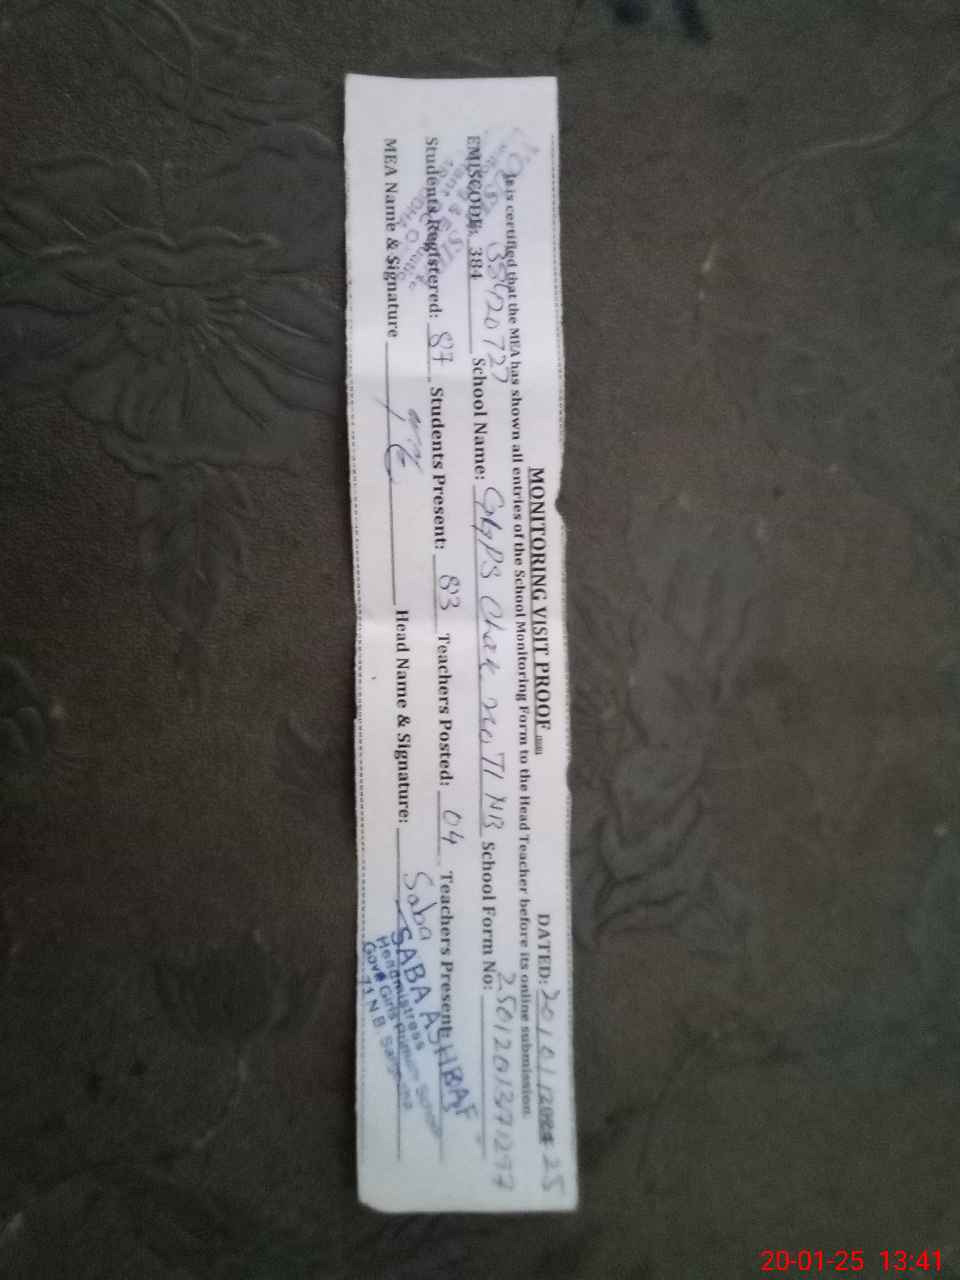 MONITORING VISIT PROOF
DATED: 20/01/2024 25
It is certified that the MEA has shown all entries of the School Monitoring Form to the Head Teacher before its online submission.
EMISCODE: 384 38420727 School Name: GGPS Chak no 71 NB School Form No:
Students Registered: 87 Students Present: 83 Teachers Posted: 04 Teachers Present:
MEA Name & Signature Head Name & Signature: Saba
SABA ASHRAF
Headmistress
Govt Girls Primary School
71 N.B. Sargodha
20-01-25 13:41